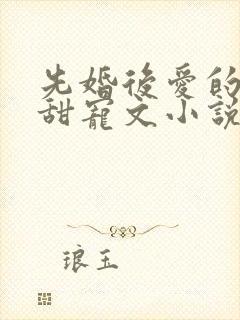 先婚後愛的
甜寵文小說
琅玉